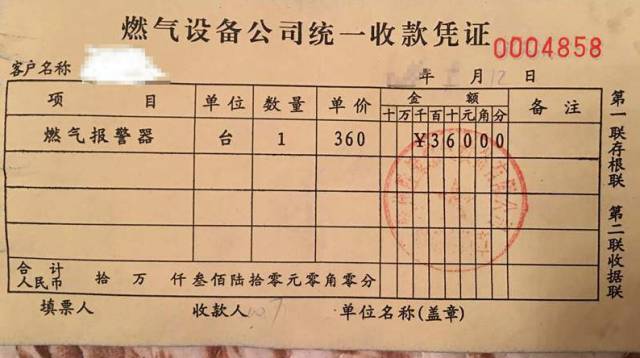 燃气设备公司统一收款凭证 0004858
客户名称 年 月 12 日
项 目 单位 数量 单价 金 额 备 注
十 万 千 百 十 元 角 分
燃气报警器 台 1 360 ¥36000
合 计
人民币 拾 万 仟 叁佰陆拾零元零角零分
填票人 收款人 单位名称(盖章)
第一联存根联 第二联收据联